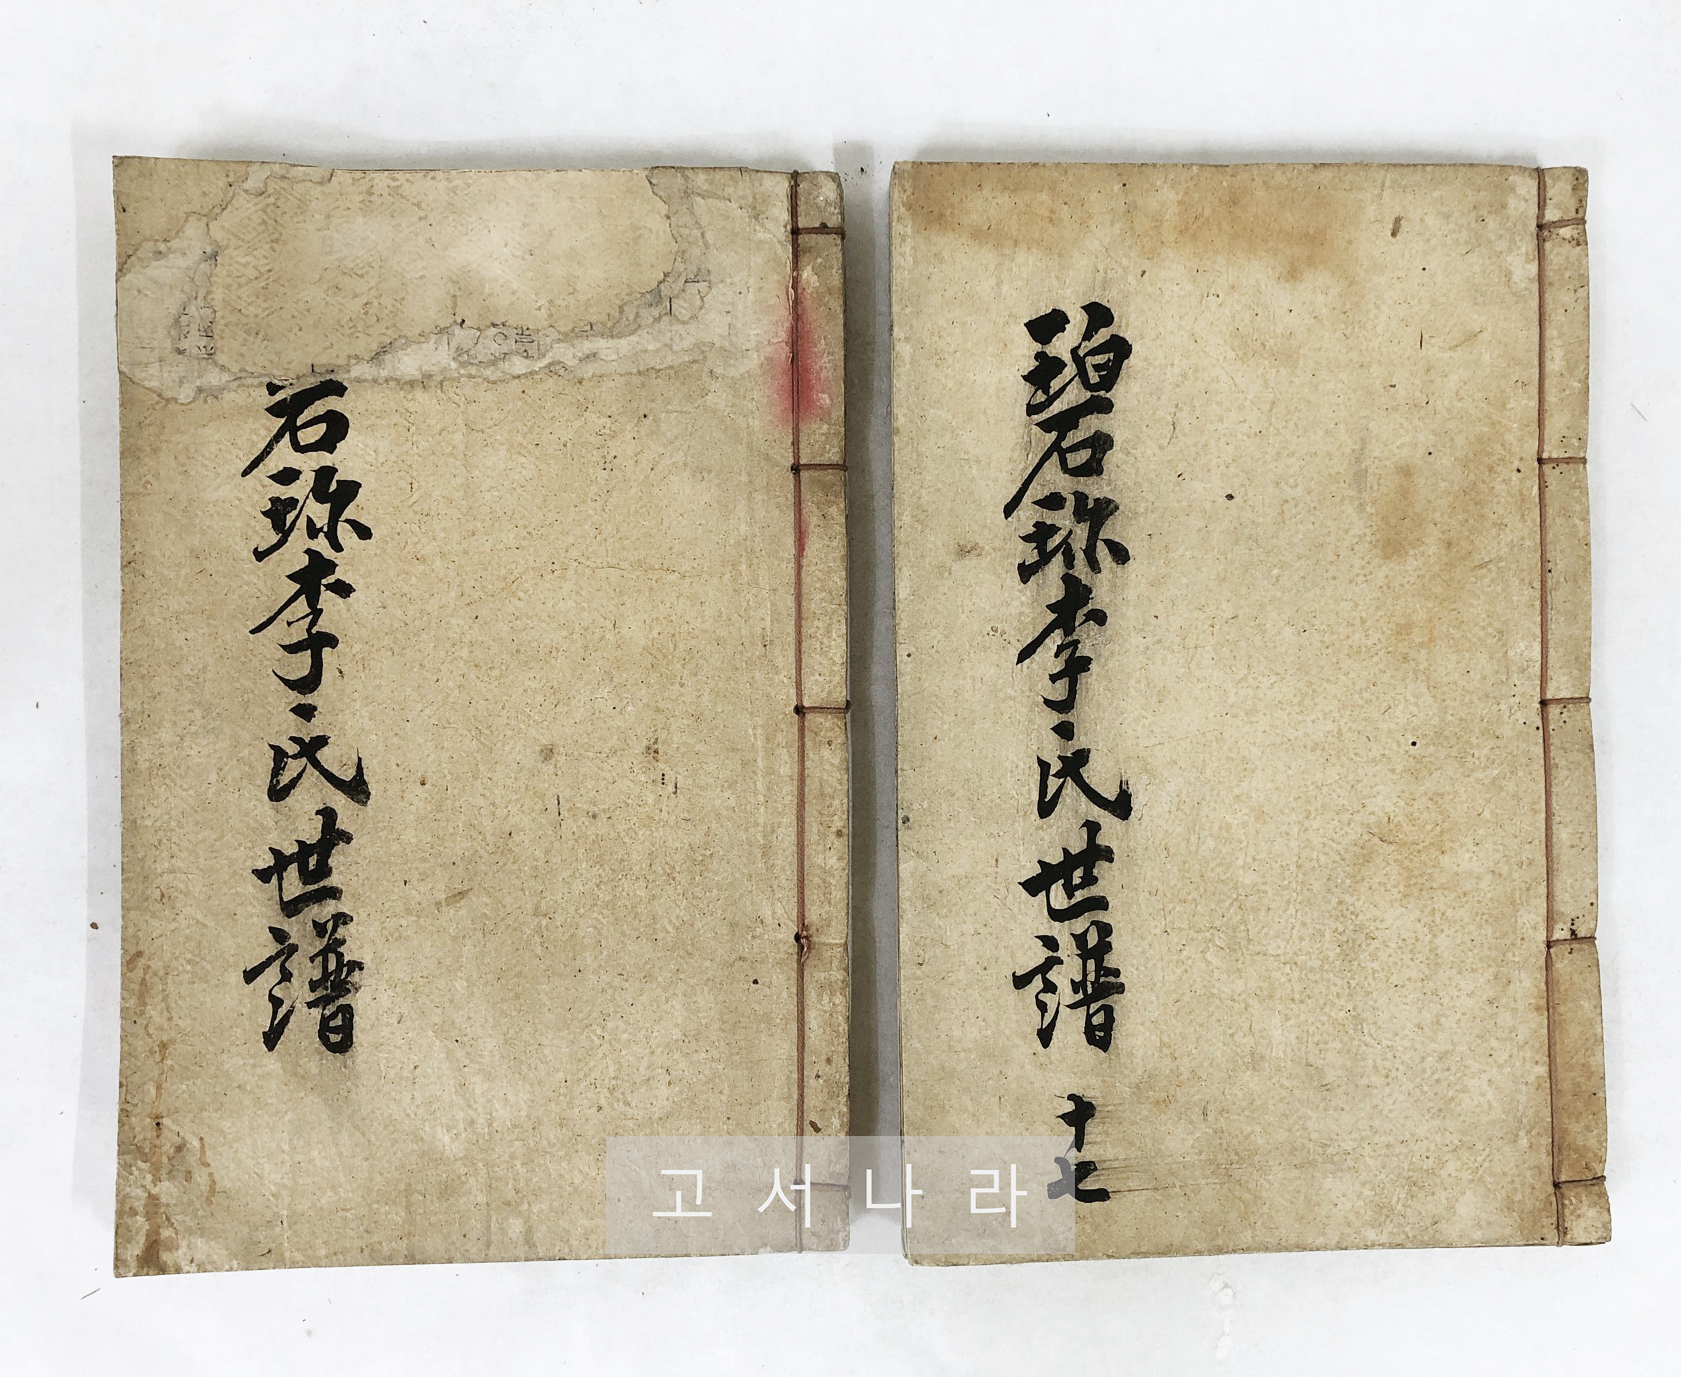 碧珎李氏世譜 十七
石珎李氏世譜
고서나라